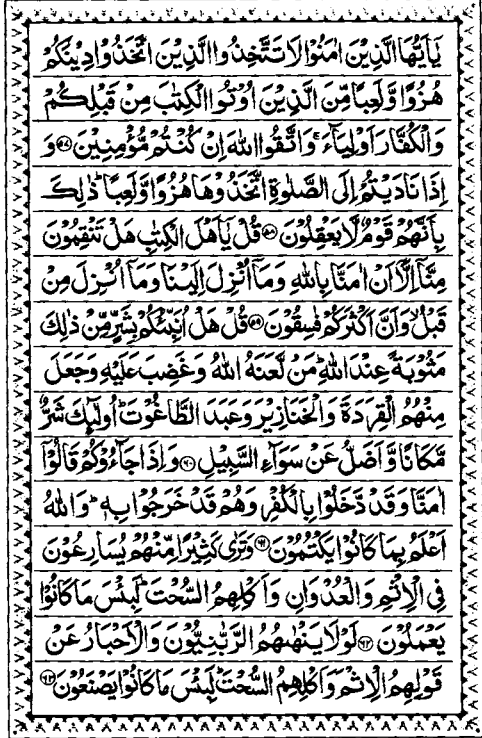 يٰۤاَيُّهَا الَّذِيْنَ اٰمَنُوْا لَا تَتَّخِذُوا الَّذِيْنَ اتَّخَذُوْا دِيْنَكُمْ
هُزُوًا وَّلَعِبًا مِّنَ الَّذِيْنَ اُوْتُوا الْكِتٰبَ مِنْ قَبْلِكُمْ
وَالْكُفَّارَ اَوْلِيَآءَ ۚ وَاتَّقُوا اللّٰهَ اِنْ كُنْتُمْ مُّؤْمِنِيْنَ ﴿۵۷﴾ وَ
اِذَا نَادَيْتُمْ اِلَى الصَّلٰوةِ اتَّخَذُوْهَا هُزُوًا وَّلَعِبًا ؕ ذٰلِكَ
بِاَنَّهُمْ قَوْمٌ لَّا يَعْقِلُوْنَ ﴿۵۸﴾ قُلْ يٰۤاَهْلَ الْكِتٰبِ هَلْ تَنْقِمُوْنَ
مِنَّاۤ اِلَّاۤ اَنْ اٰمَنَّا بِاللّٰهِ وَمَاۤ اُنْزِلَ اِلَيْنَا وَمَاۤ اُنْزِلَ مِنْ
قَبْلُ ۙ وَاَنَّ اَكْثَرَكُمْ فٰسِقُوْنَ ﴿۵۹﴾ قُلْ هَلْ اُنَبِّئُكُمْ بِشَرٍّ مِّنْ ذٰلِكَ
مَثُوْبَةً عِنْدَ اللّٰهِ ؕ مَنْ لَّعَنَهُ اللّٰهُ وَغَضِبَ عَلَيْهِ وَجَعَلَ
مِنْهُمُ الْقِرَدَةَ وَالْخَنَازِيْرَ وَعَبَدَ الطَّاغُوْتَ ؕ اُولٰٓئِكَ شَرٌّ
مَّكَانًا وَّاَضَلُّ عَنْ سَوَآءِ السَّبِيْلِ ﴿۶۰﴾ وَاِذَا جَآءُوْكُمْ قَالُوْۤا
اٰمَنَّا وَقَدْ دَّخَلُوْا بِالْكُفْرِ وَهُمْ قَدْ خَرَجُوْا بِهٖ ؕ وَاللّٰهُ
اَعْلَمُ بِمَا كَانُوْا يَكْتُمُوْنَ ﴿۶۱﴾ وَتَرٰى كَثِيْرًا مِّنْهُمْ يُسَارِعُوْنَ
فِى الْاِثْمِ وَالْعُدْوَانِ وَاَكْلِهِمُ السُّحْتَ ؕ لَبِئْسَ مَا كَانُوْا
يَعْمَلُوْنَ ﴿۶۲﴾ لَوْلَا يَنْهٰىهُمُ الرَّبّٰنِيُّوْنَ وَالْاَحْبَارُ عَنْ
قَوْلِهِمُ الْاِثْمَ وَاَكْلِهِمُ السُّحْتَ ؕ لَبِئْسَ مَا كَانُوْا يَصْنَعُوْنَ ﴿۶۳﴾